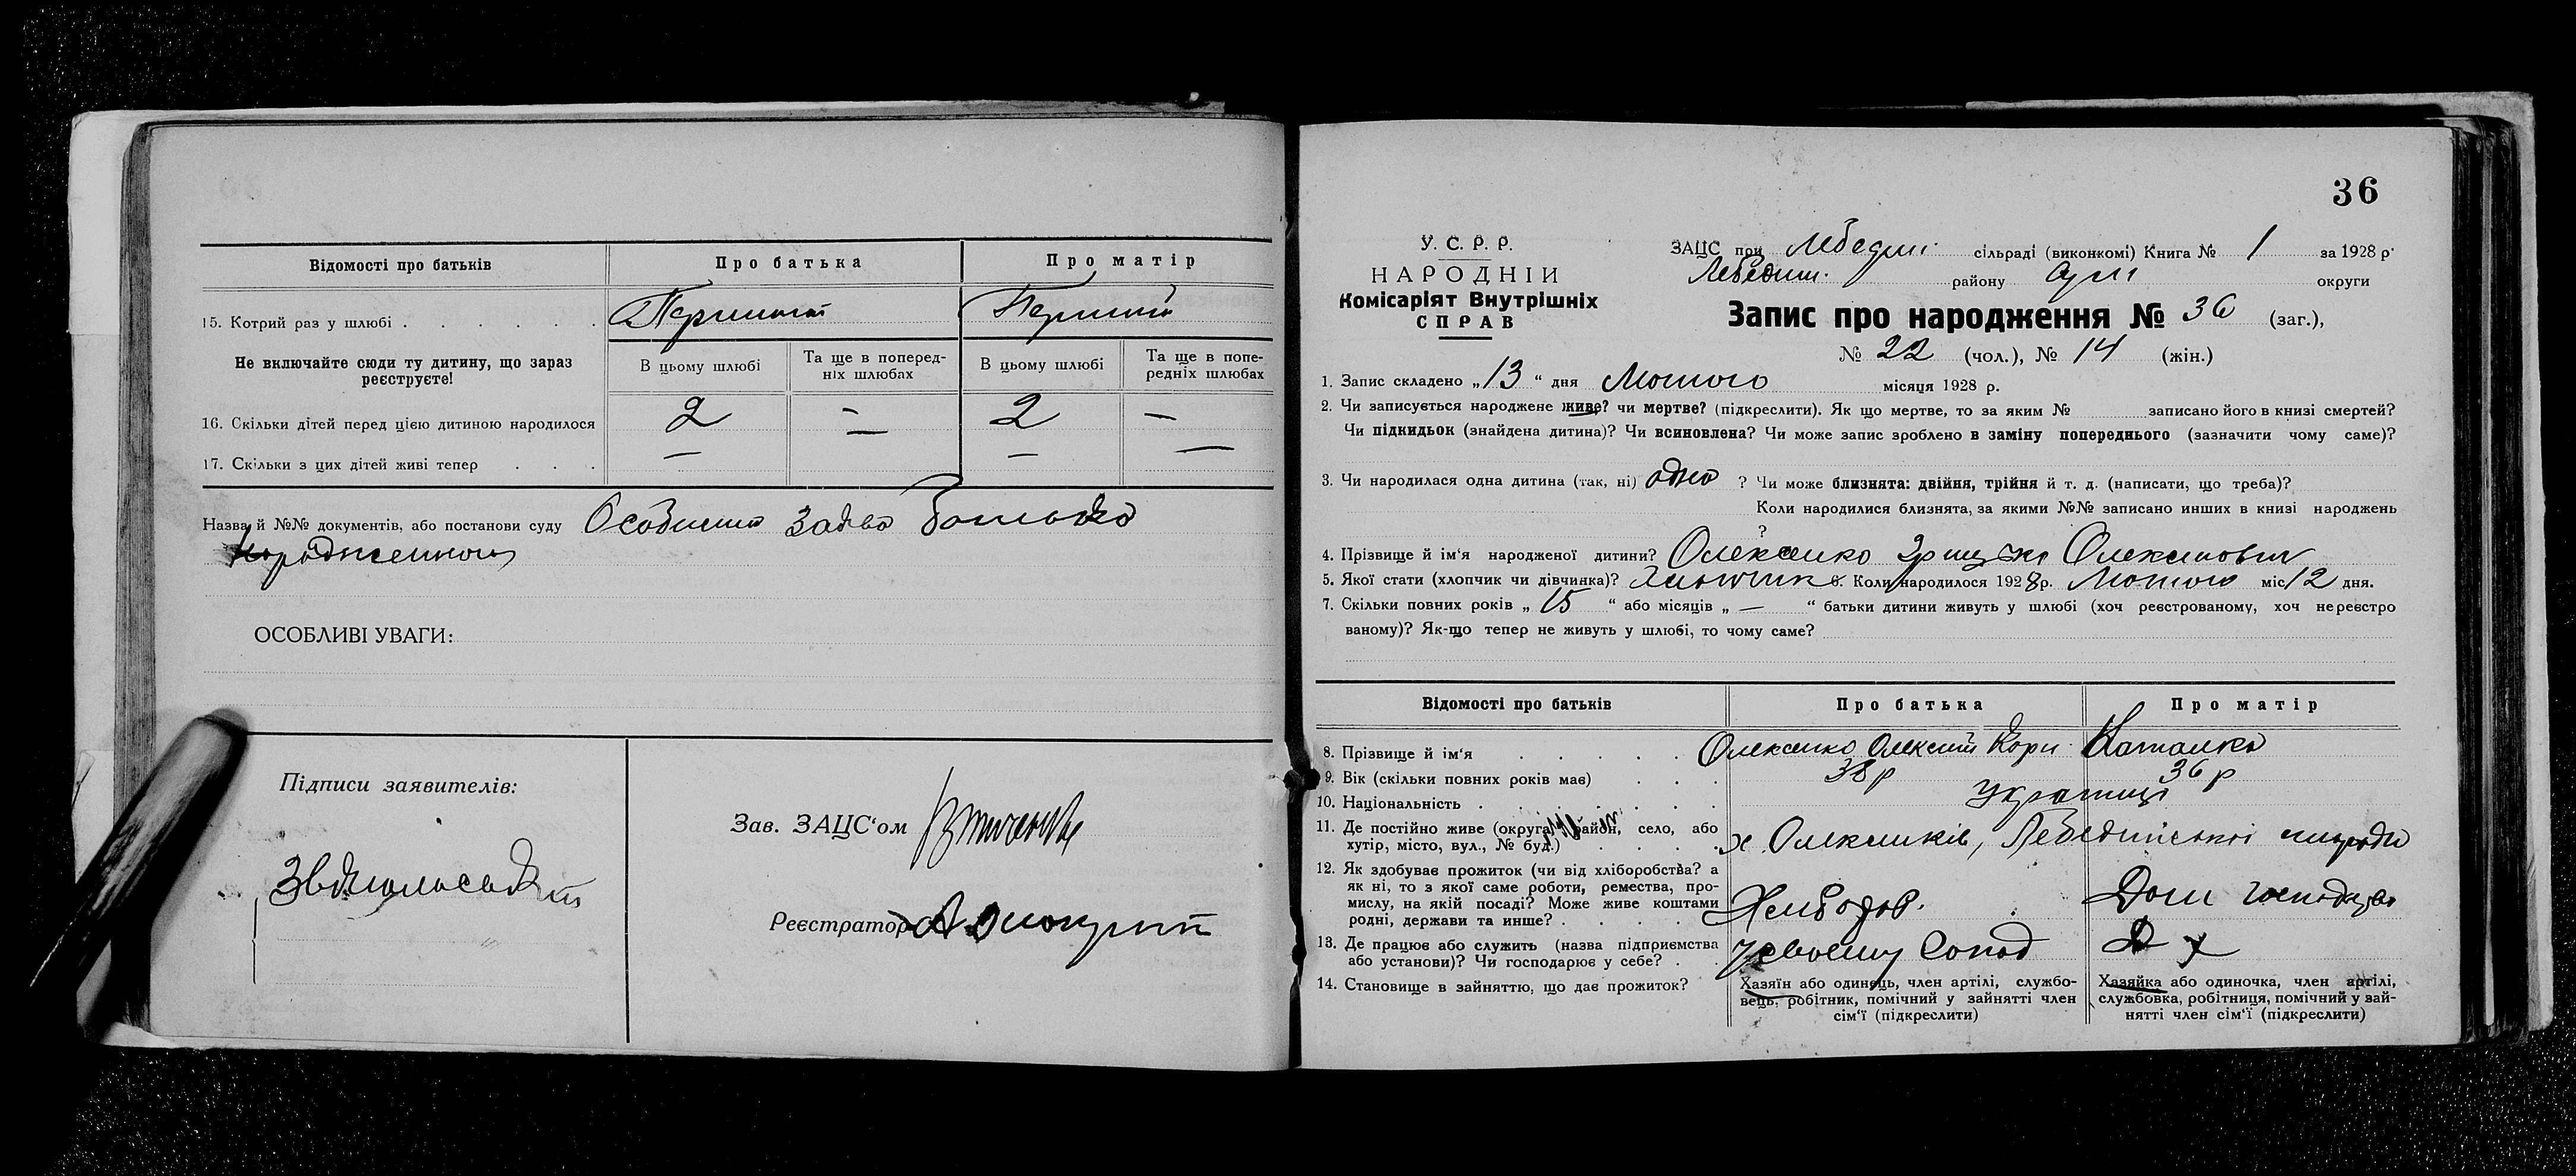 Відомості про батьків Про батька Про матір
15. Котрий раз у шлюбі . . . . . . Перший Перший
Не включайте сюди ту дитину, що зараз реєструєте!
В цьому шлюбі Та ще в поперед-ніх шлюбах В цьому шлюбі Та ще в попе-редніх шлюбах
16. Скільки дітей перед цією дитиною народилося 2 — 2 —
17. Скільки з цих дітей живі тепер . . . — — — —
Назва й №№ документів, або постанови суду Особиста заява батька
народженного
ОСОБЛИВІ УВАГИ:
Підписи заявителів:
Зав. ЗАЦС'ом
Реєстратор
36
У. С. Р. Р.
НАРОДНІЙ
Комісаріят Внутрішніх
СПРАВ
ЗАЦС при Лебедин. сільраді (виконкомі) Книга № 1 за 1928 р.
Лебедин. району Сум округи
Запис про народження № 36 (заг.),
№ 22 (чол.), № 14 (жін.)
1. Запис складено „13“ дня Лютого місяця 1928 р.
2. Чи записується народжене живе? чи мертве? (підкреслити). Як що мертве, то за яким № записано його в книзі смертей?
Чи підкидьок (знайдена дитина)? Чи всиновлена? Чи може запис зроблено в заміну попереднього (зазначити чому саме)?
3. Чи народилася одна дитина (так, ні) одна ? Чи може близнята: двійня, трійня й т. д. (написати, що треба)?
Коли народилися близнята, за якими №№ записано инших в книзі народжень
?
4. Прізвище й ім'я народженої дитини? Олексенко Грицько Олексієвич
5. Якої стати (хлопчик чи дівчинка)? Хлопчик 6. Коли народилося 1928 р. Лютого міс 12 дня.
7. Скільки повних років „15“ або місяців „—“ батьки дитини живуть у шлюбі (хоч реєстрованому, хоч нереєстро
ваному)? Як-що тепер не живуть у шлюбі, то чому саме?
Відомості про батьків Про батька Про матір
8. Прізвище й ім'я . . . . . Олексенко Олексій Корн Наталка
9. Вік (скільки повних років має) . . . 38 р 36 р
10. Національність . . . . . . . . Українці
11. Де постійно живе (округа, район, село, або
хутір, місто, вул., № буд.) . . . . х. Олексенків, Лебединської
12. Як здобуває прожиток (чи від хліборобства? а
як ні, то з якої саме роботи, ремества, про-
мислу, на якій посаді? Може живе коштами
родні, держави та инше? . . . . Хлібороб. Дом господарка
13. Де працює або служить (назва підприємства
або установи)? Чи господарює у себе? . . У своєму господ
14. Становище в зайняттю, що дає прожиток?
Хазяїн або одинець, член артілі, службо-
вець, робітник, помічний у зайнятті член
сім'ї (підкреслити)
Хазяйка або одиночка, член артілі,
службовка, робітниця, помічний у зай-
нятті член сім'ї (підкреслити)